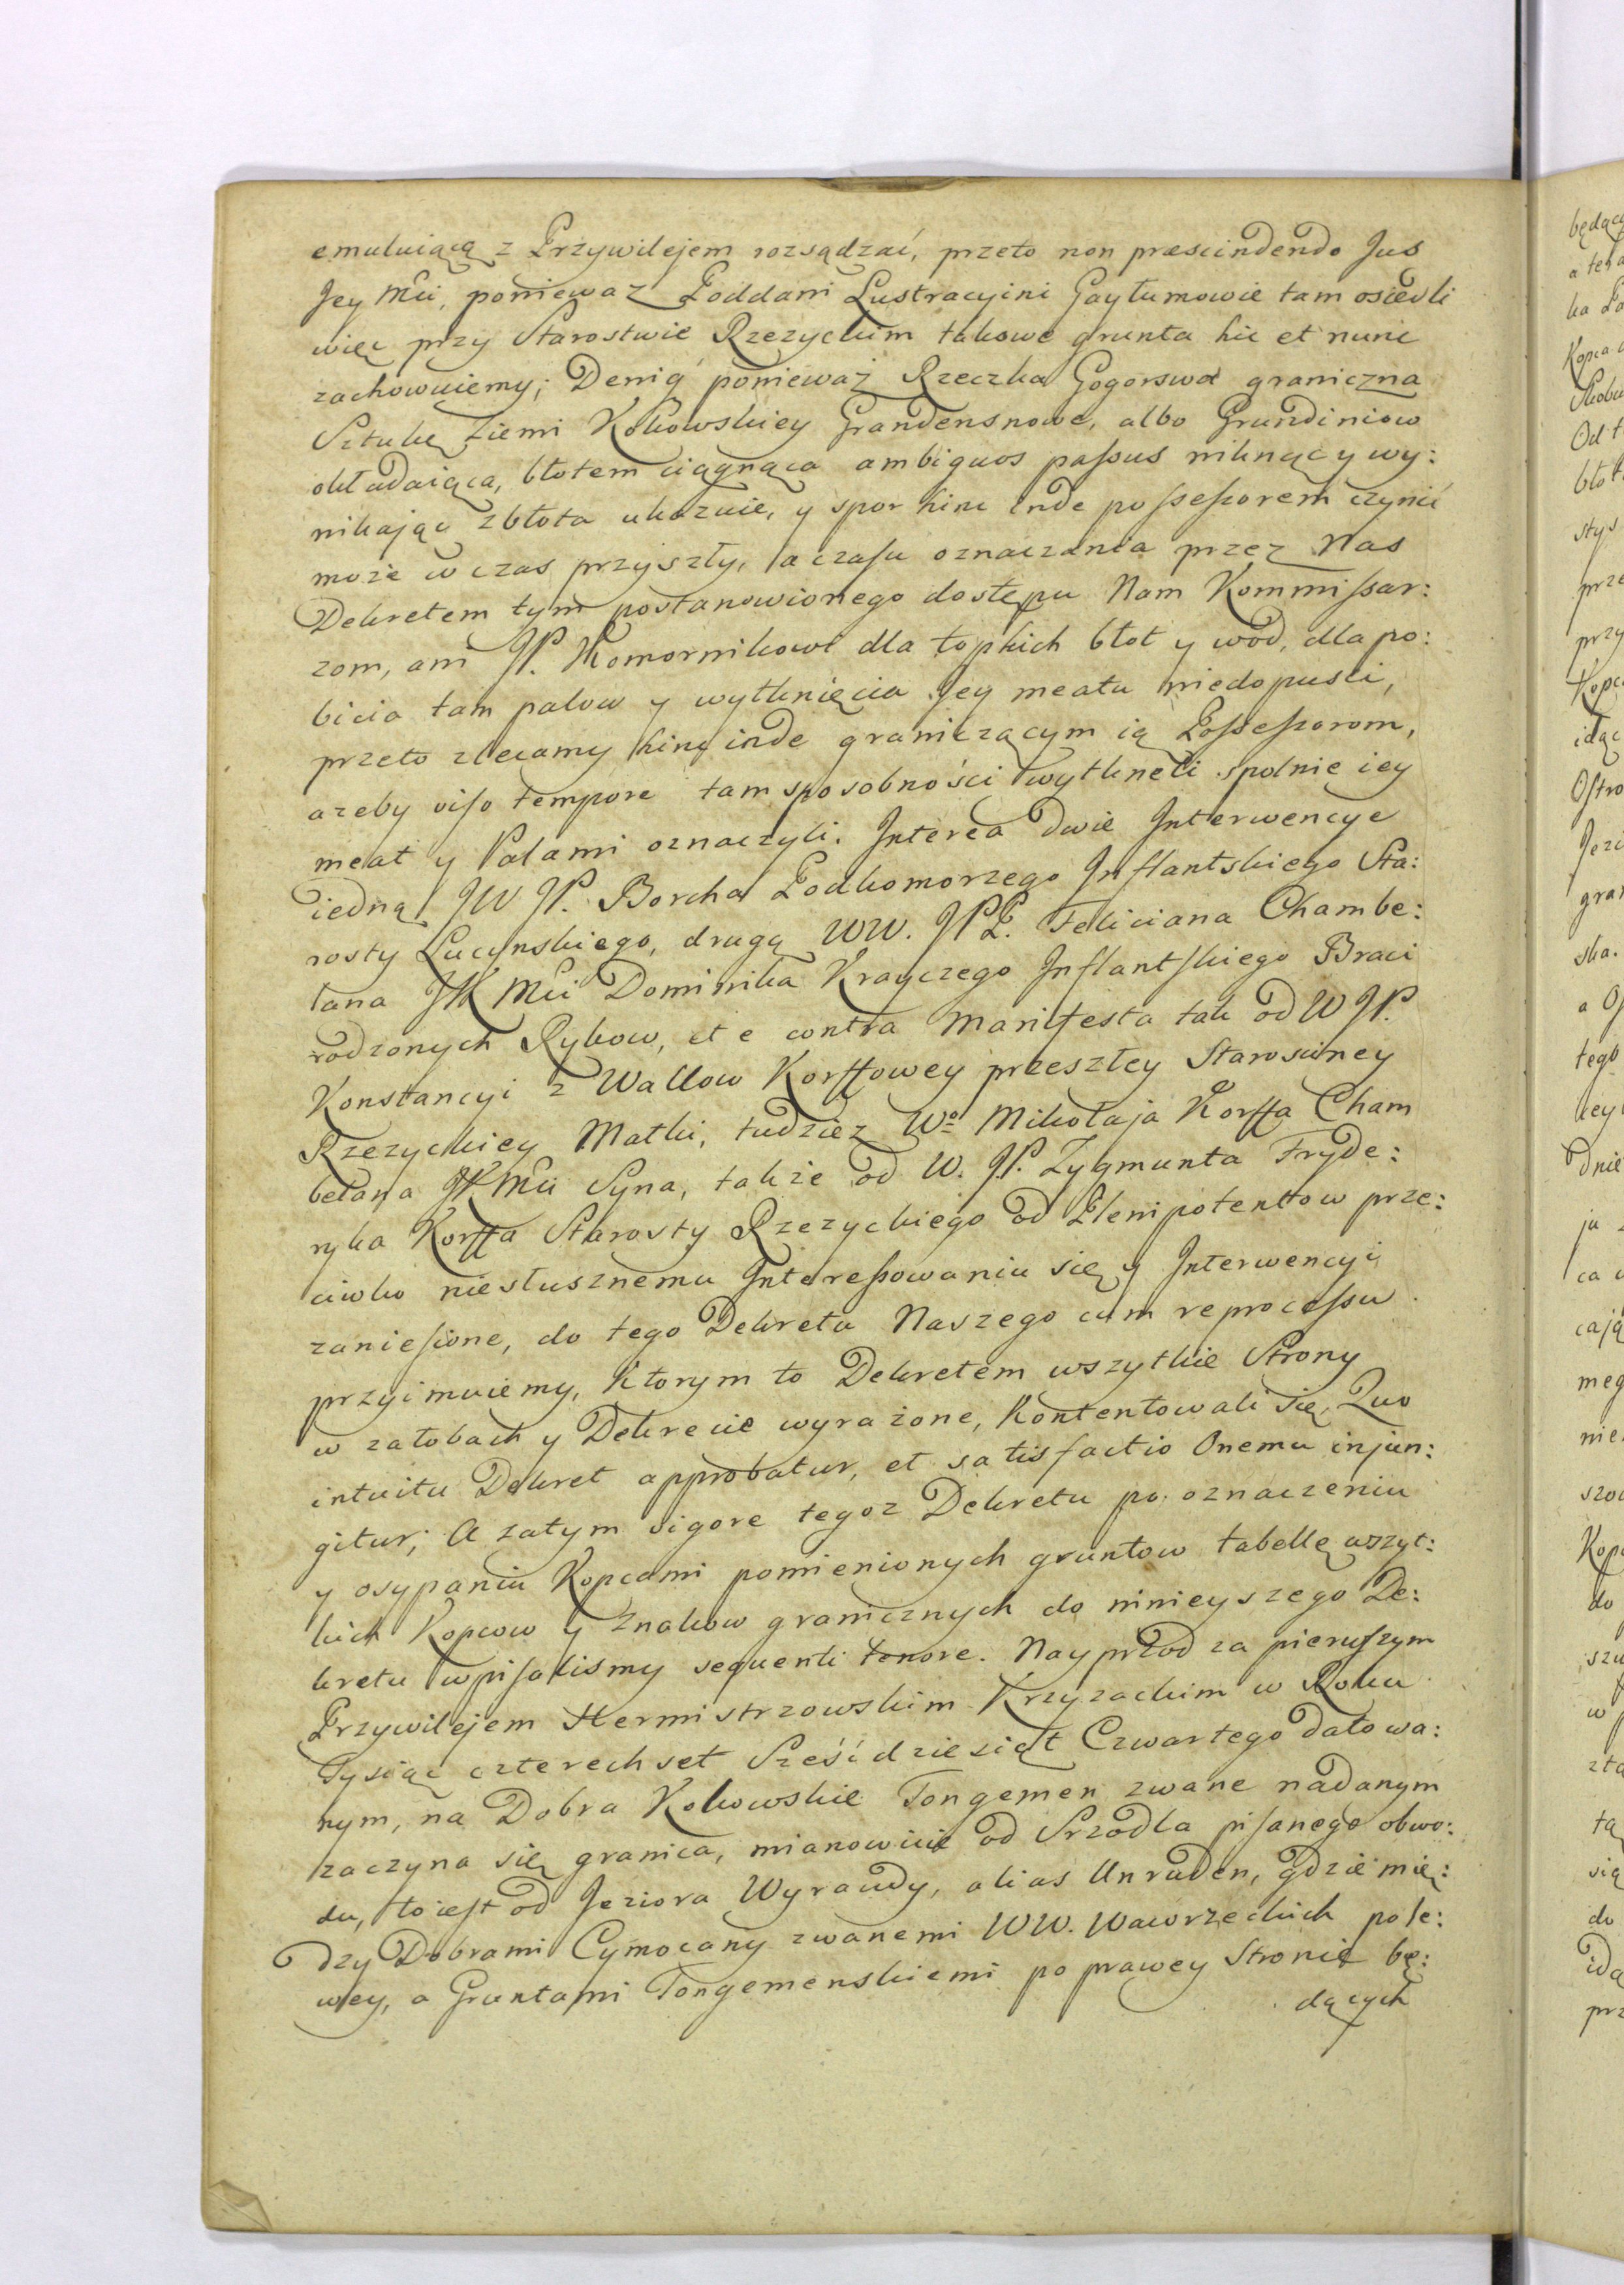 emuluiącą z Przywilejem rozsądzać, przeto non præscindendo Jus
Jey Mći, poniewaz Poddani Lustracyini Gaytumowie tam osiedli
więc przy Starostwie Rzezyckim takowe grunta hic et nunc
zachowuiemy; Deniq́ ponieważ Rzeczka Gogorswa graniczna
Sztukę Ziemi Kokowskiey Grandensnowe, albo Grundiniow
okładaiąca, błotem ciągnąca ambiguos paſsus niknący wy:
nikając z błota ukazuie, y spor hinc inde poſseſsorem czynić
może w czas przyszły, a czasu oznaczania przez Nas
Dekretem tym postanowionego dostępu Nam Kommiſsar:
zom, ani JP. Komornikowi dla topkich błot y wod, dla po:
bicia tam palow y wytknięcia Jey meatu niedopusci,
przeto zlecamy hinc inde graniczącym ią Poſseſsorom,
azeby viso tempore tam sposobności wytkneli spolnie iey
meat y Palami oznaczyli. Interea dwie Interwencye
iedną JW JP. Borcha Podkomorzego Inflantskiego Sta:
rosty Lucynskiego, drugą WW. JPP. Feliciana Chambe:
lana JK Mći Dominika Krayczego Inflantſkiego Braci
rodzonych Rykow, et e contra Manifesta tak od W JP.
Konstancyi z Wallow Korffowey przeszłey Starosciney
Rzezyckiey Matki, tudziez Wo Mikołaja Korffa Cham
belana JK Mći Syna, także od W. JP. Zygmunta Fryde:
ryka Korffa Starosty Rzezyckiego od Plenipotentow prze:
ciwko niesłusznemu Intereſsowaniu się y Interwencyi
zaniesione, do tego Dekretu Naszego cum reproceſsu
przyimuiemy, Ktorym to Dekretem wszytkie Strony
w załobach y Dekrecie wyrażone, Kontentowali się, Quo
intuitu Dekret approbatur, et satisfactio Onemu injun:
gitur; A zatym vigore tegoz Dekretu po oznaczeniu
y osypaniu Kopcami pomienionych gruntow tabellę wszyt:
kich Kopcow y Znakow granicznych do ninieyszego De:
kretu wpisalismy sequenti tenore. Nayprzod za pierwszym
Przywilejem Hermistrzowskim Krzyzackim w Roku
Tysiąc czterechset Sześćdziesiąt Czwartego datowa:
nym, na Dobra Kokowskie Tongemen zwane nadanym
zaczyna się granica, mianowicie od Srzodla pisanego obwo:
du, to iest od Jeziora Wyraudy, alias Unruden, gdzie mię:
dzy Dobrami Cymocany zwanemi WW. Wawrzeckich po le:
wey, a Gruntami Tongemenskiemi po prawey Stronie bę:
dących